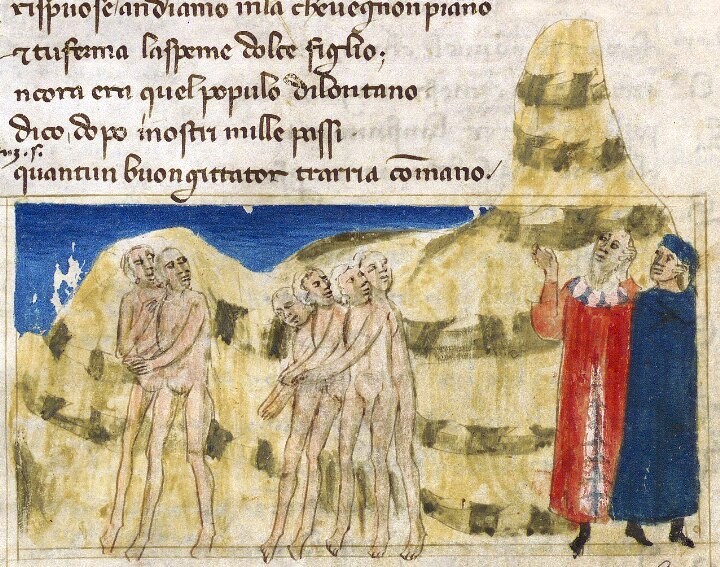 rispuose/andiamo inla cheuegnonpiano
⁊tuferma laspeme dolce figlio;
ncora era quel populo dilontano
dico, dopo inostri mille passi
quantun buongittator trarria cōmano.